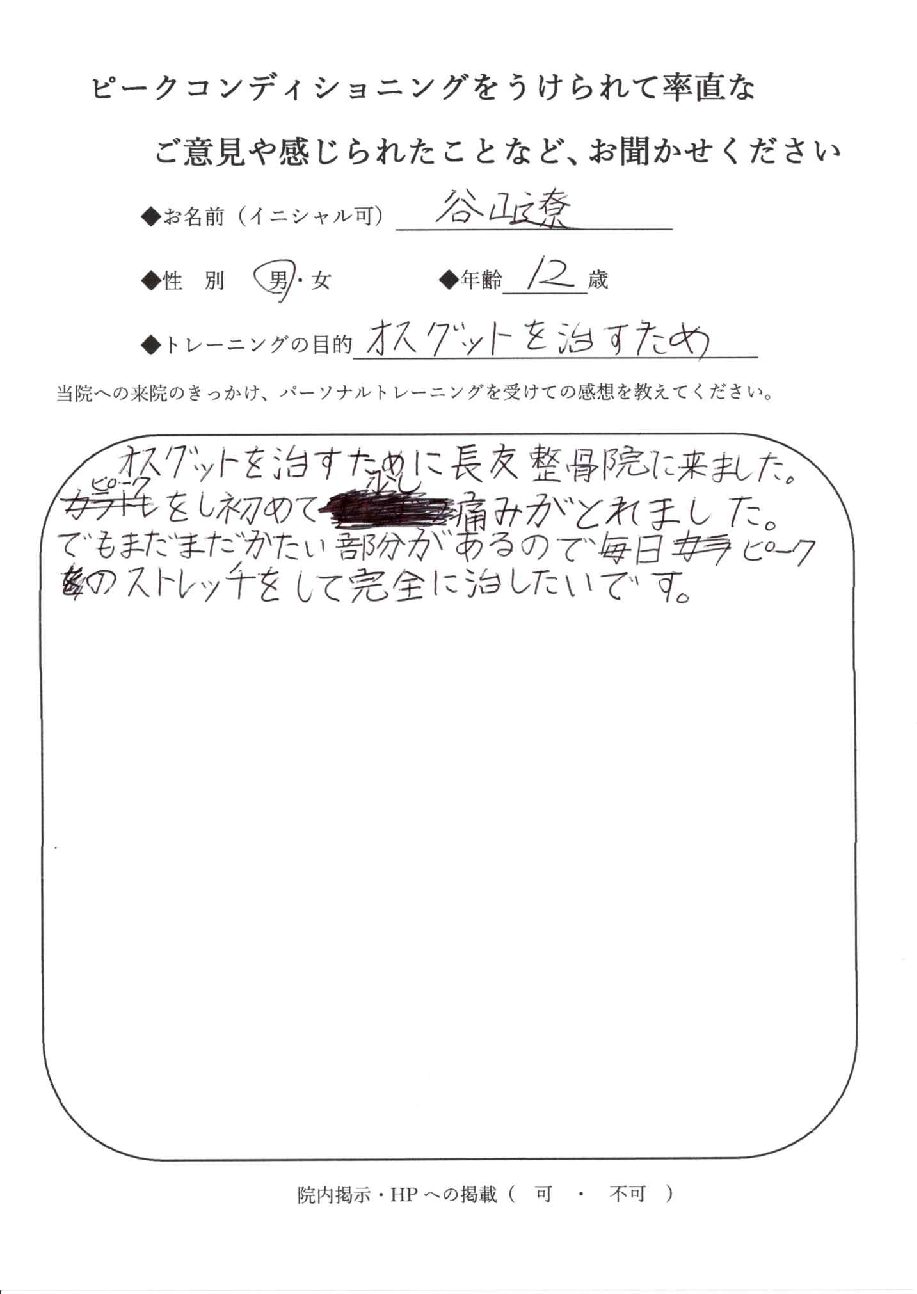 ピークコンディショニングをうけられて率直な
ご意見や感じられたことなど、お聞かせください
◆お名前（イニシャル可） 谷山遼
◆性 別 男・女 ◆年齢 12 歳
◆トレーニングの目的 オスグットを治すため
当院への来院のきっかけ、パーソナルトレーニングを受けての感想を教えてください。
オスグットを治すために長友整骨院に来ました。
ピークをし初めて少し痛みがとれました。
でもまだまだかたい部分があるので毎日ピーク
のストレッチをして完全に治したいです。
院内掲示・HPへの掲載（ 可 ・ 不可 ）